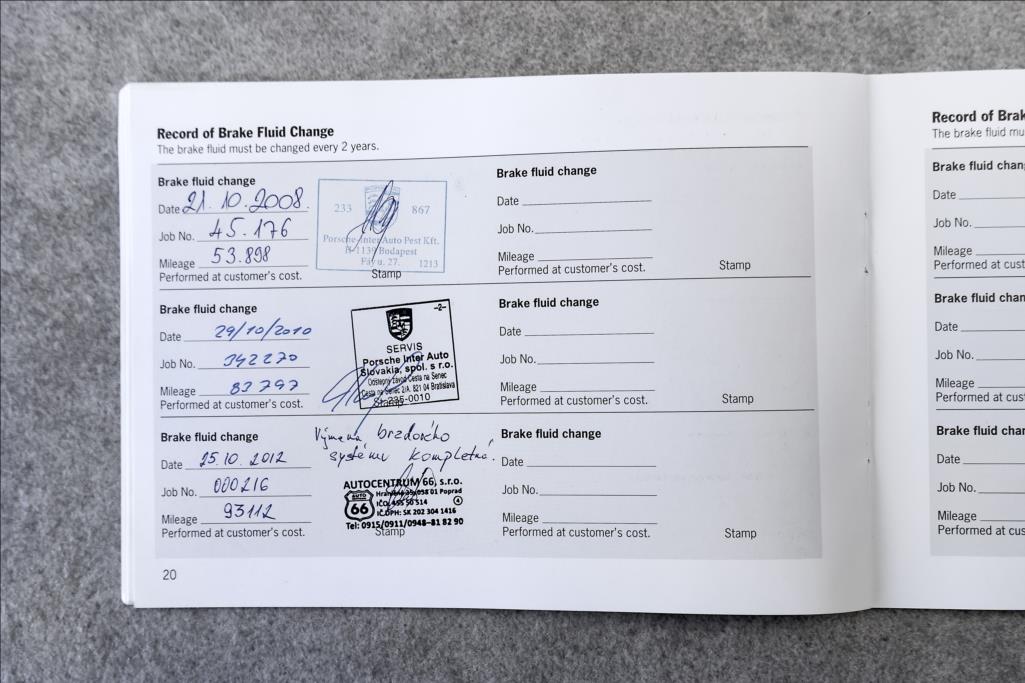 Record of Brake Fluid Change
The brake fluid must be changed every 2 years.
Brake fluid change
Date 21.10.2008.
Job No. 45.176
Mileage 53.898
Performed at customer's cost.
233 867
Porsche Inter Auto Pest Kft.
H-1139 Budapest
Fáy u. 27. 1213
Stamp
Brake fluid change
Date 29/10/2010
Job No. 342270
Mileage 83797
Performed at customer's cost.
-2-
SERVIS
Porsche Inter Auto
Slovakia, spol. s r.o.
Odštepný závod Cesta na Senec
Cesta na Senec 2/A, 821 04 Bratislava
235-0010
Stamp
Brake fluid change
Date 25.10.2012
Job No. 000216
Mileage 93112
Performed at customer's cost.
Výmena brzdového
systému kompletná.
AUTOCENTRUM 66, s.r.o.
058 01 Poprad
AUTO
66
IČO:
4
IČ DPH: SK 202 304 1416
Tel: 0915/0911/0948-81 82 90
Stamp
Brake fluid change
Date
Job No.
Mileage
Performed at customer's cost.
Stamp
Brake fluid change
Date
Job No.
Mileage
Performed at customer's cost.
Stamp
Brake fluid change
Date
Job No.
Mileage
Performed at customer's cost.
Stamp
20
Record of Brak
The brake fluid mu
Brake fluid chang
Date
Job No.
Mileage
Performed at cus
Brake fluid chan
Date
Job No.
Mileage
Performed at cus
Brake fluid chan
Date
Job No.
Mileage
Performed at cus